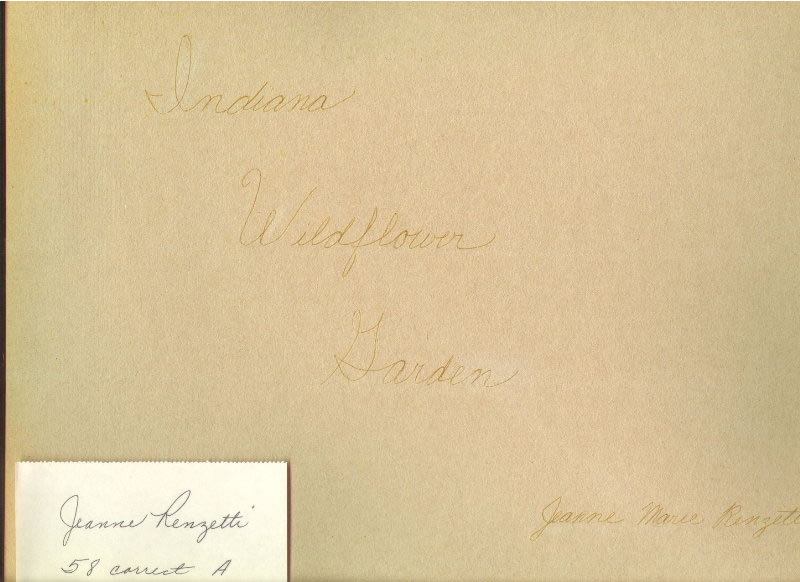 Indiana
Wildflower
Garden
Jeanne Marie Renzetti
Jeanne Renzetti
58 correct A